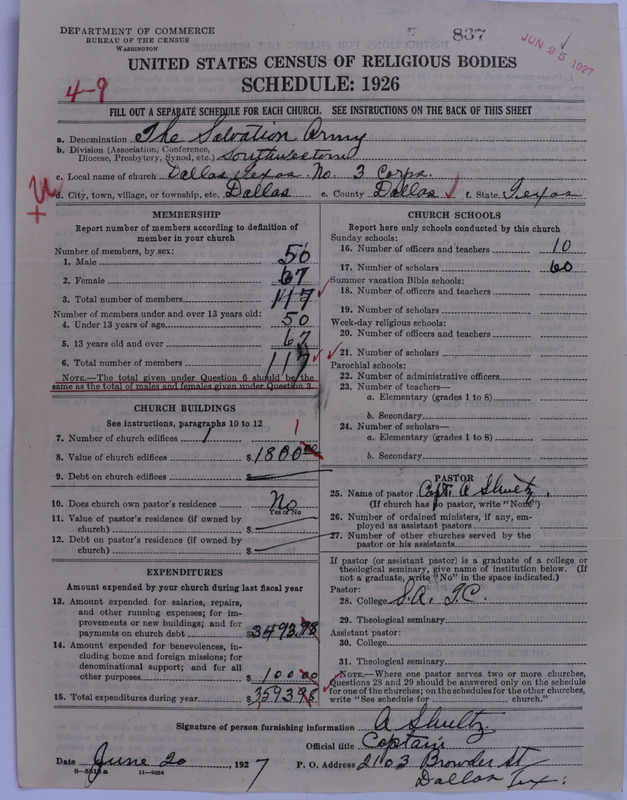 DEPARTMENT OF COMMERCE
BUREAU OF THE CENSUS
WASHINGTON
837
JUN 25 1927
UNITED STATES CENSUS OF RELIGIOUS BODIES
SCHEDULE: 1926
4-9
FILL OUT A SEPARATE SCHEDULE FOR EACH CHURCH. SEE INSTRUCTIONS ON THE BACK OF THIS SHEET
a. Denomination The Salvation Army
b. Division (Association, Conference, Diocese, Presbytery, Synod, etc.) Southwestern
c. Local name of church Dallas Texas No. 3 Corps.
d. City, town, village, or township, etc. Dallas e. County Dallas f. State Texas
MEMBERSHIP
Report number of members according to definition of
member in your church
Number of members, by sex:
1. Male 50
2. Female 67
3. Total number of members 117
Number of members under and over 13 years old:
4. Under 13 years of age 50
5. 13 years old and over 67
6. Total number of members 117
NOTE.—The total given under Question 6 should be the
same as the total of males and females given under Question 3.
CHURCH BUILDINGS
See instructions, paragraphs 10 to 12
7. Number of church edifices 1 1
8. Value of church edifices $ 1800.00
9. Debt on church edifices $
10. Does church own pastor's residence No
Yes or No
11. Value of pastor's residence (if owned by
church) $
12. Debt on pastor's residence (if owned by
church) $
EXPENDITURES
Amount expended by your church during last fiscal year
13. Amount expended for salaries, repairs,
and other running expenses; for im-
provements or new buildings; and for
payments on church debt $3493.98
14. Amount expended for benevolences, in-
cluding home and foreign missions; for
denominational support; and for all
other purposes $ 100 00
15. Total expenditures during year $3593.98
CHURCH SCHOOLS
Report here only schools conducted by this church
Sunday schools:
16. Number of officers and teachers 10
17. Number of scholars 60
Summer vacation Bible schools:
18. Number of officers and teachers
19. Number of scholars
Week-day religious schools:
20. Number of officers and teachers
21. Number of scholars
Parochial schools:
22. Number of administrative officers
23. Number of teachers—
a. Elementary (grades 1 to 8)
b. Secondary
24. Number of scholars—
a. Elementary (grades 1 to 8)
b. Secondary
PASTOR
25. Name of pastor Capt. A Shultz.
(If church has no pastor, write "None")
26. Number of ordained ministers, if any, em-
ployed as assistant pastors
27. Number of other churches served by the
pastor or his assistants
If pastor (or assistant pastor) is a graduate of a college or
theological seminary, give name of institution below. (If
not a graduate, write "No" in the space indicated.)
Pastor:
28. College S.A. T.C.
29. Theological seminary
Assistant pastor:
30. College
31. Theological seminary
NOTE.—Where one pastor serves two or more churches,
Questions 28 and 29 should be answered only on the schedule
for one of the churches; on the schedules for the other churches,
write "See schedule for church."
Signature of person furnishing information A Shultz
Official title Captain
Date June 20, 1927 P. O. Address 2103 Browder St
Dallas Tex.
8-5513a 11-9054